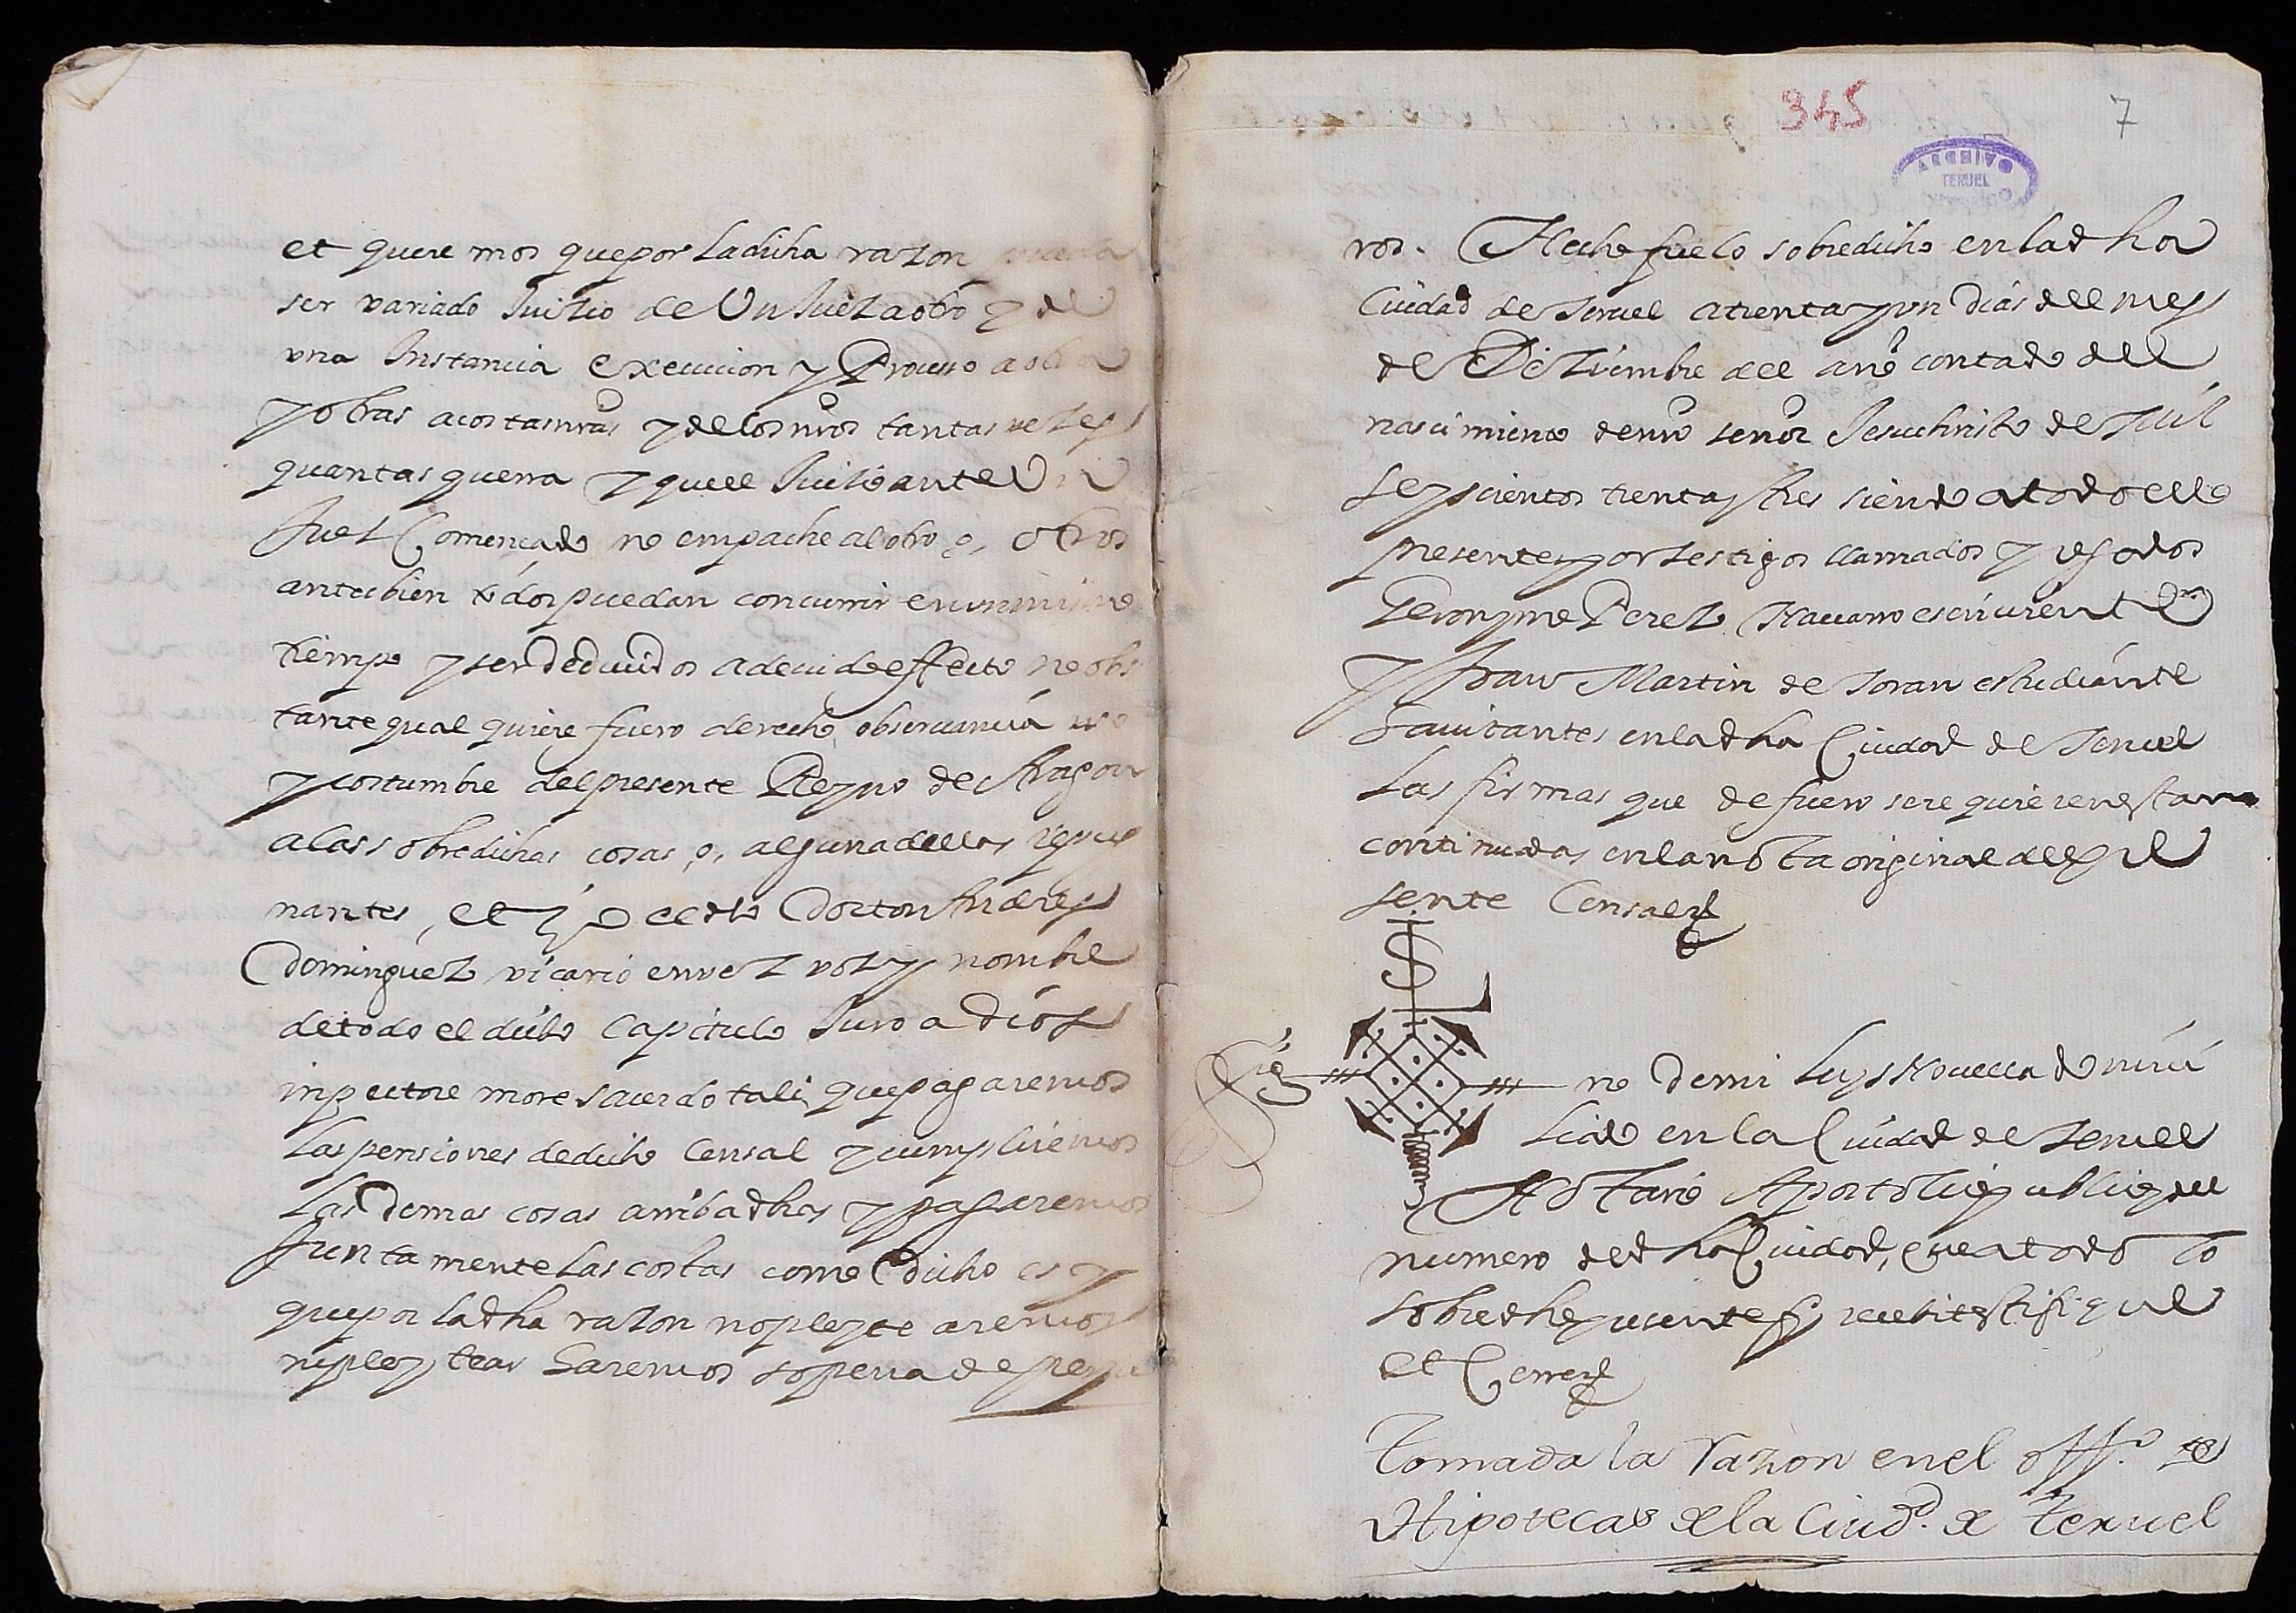 et queremos que por la dicha razon pueda
ser variado Juizio de Un Juez a otro y de
una Instancia execucion y Processo a otra
y otras a costas nras y de los nros tantas vezes
quantas querra y que el Juizio ante Un
Juez Començado no empache al otro o, otros
antes bien todos puedan concurrir en un mismo
tiempo y ser deduzidos a devido effecto no obs
tante qual quiere fuero derecho observancia uso
y costumbre del presente Reyno de Aragon
a las sobredichas cosas, o, alguna dellas repug
nantes, et yo el dho Doctor Andres
Dominguez vicario en vez voz y nombre
de todo el dicho Capitulo Juro a Dios
in pectore more sacerdotali que pagaremos
las pensiones de dicho Censal y cumpliremos
las demas cosas arriba dhas y pagaremos
Juntamente las costas como dicho es y
que por la dha razon no pleytearemos
ni pleytear haremos so pena de perju
345
7
ARCHIVO
TERUEL
ros. Hecho fue lo sobredicho en la dha
Ciudad de Teruel a trenta y un dias del mes
de Deziembre del año contado del
nascimiento de nro señor Jesuchristo de mil
seyscientos trenta y tres siendo a todo ello
presentes por testigos llamados y rogados
Geronymo Perez Navarro escriviente
y Juan Martin de Toran estudiante
havitantes en la dha Ciudad de Teruel
Las firmas que de fuero se requieren estan
continuadas en la nota original del pre
sente Censal
Sig no de mi Luys Novella domici
liado en la Ciudad de Teruel
Notario Apostolico publico del
numero de dha Ciudad, que a todo lo
sobredho presente fuy recebi testifique
et Cerre
Tomada la razon en el offo. de
Hipotecas de la Ciud. de Teruel